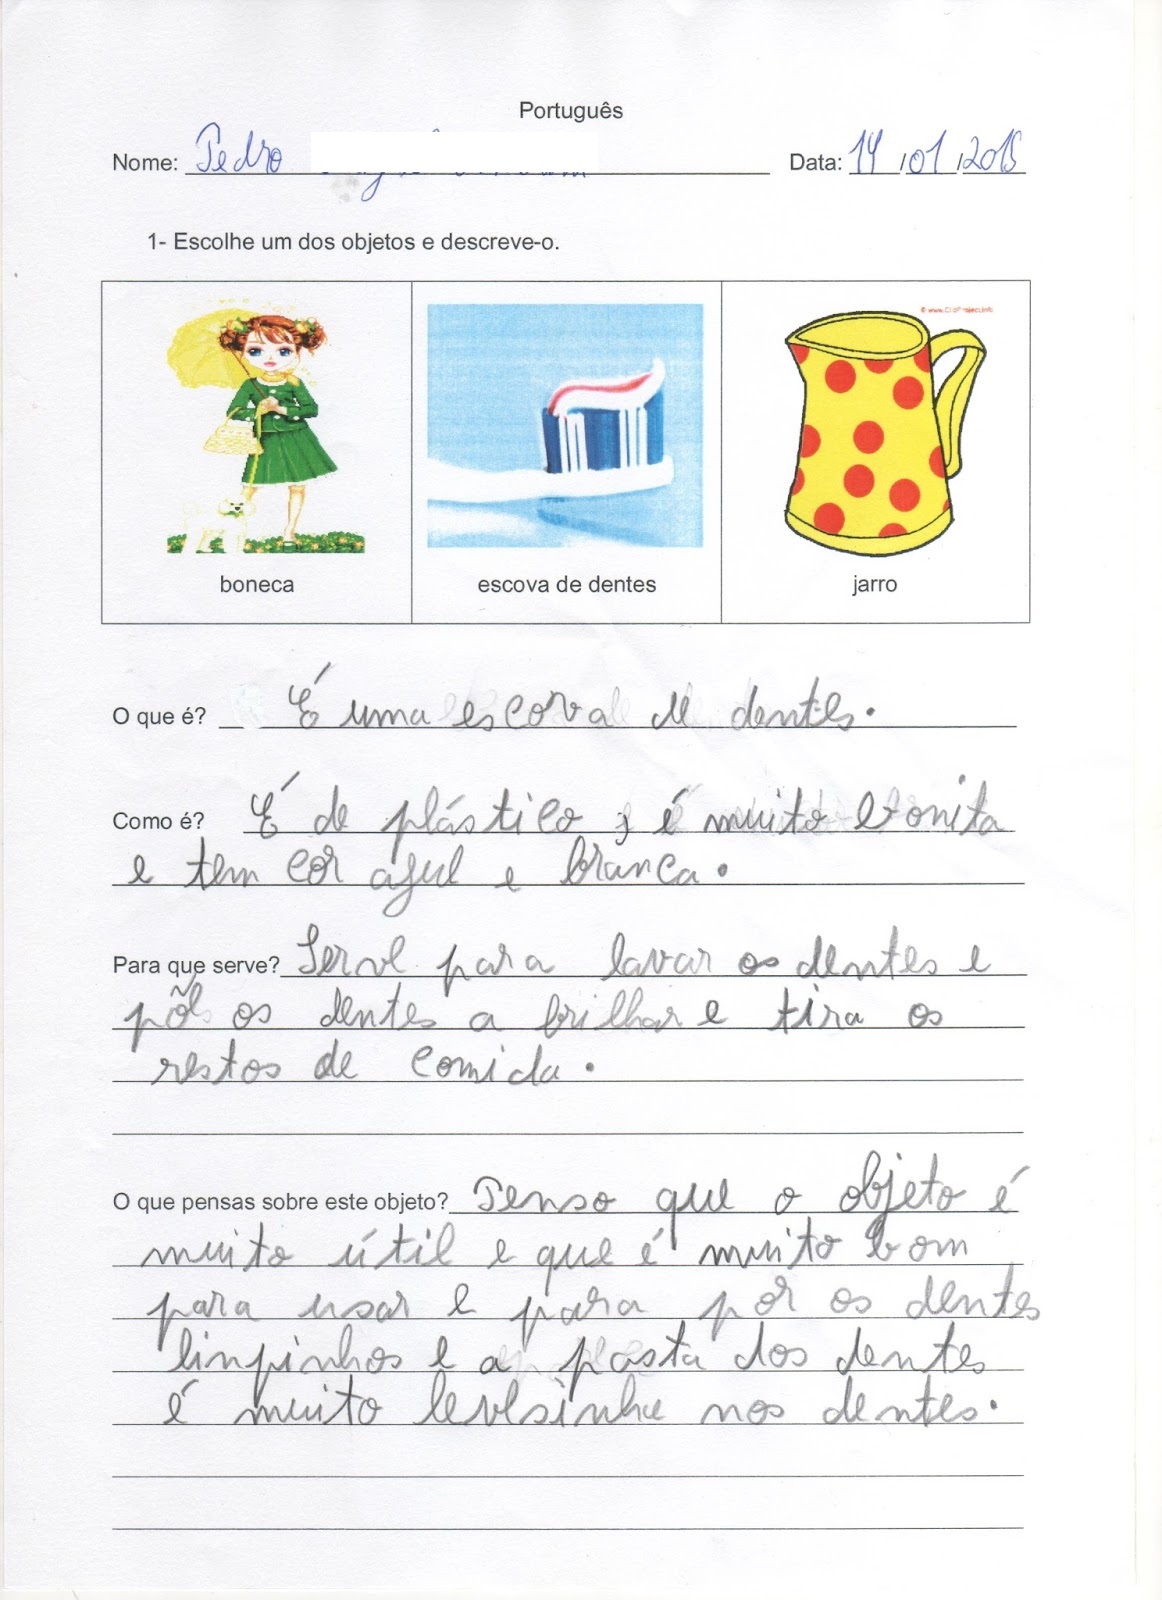 Português
Nome: Pedro Data: 14/01/2015
1- Escolhe um dos objetos e descreve-o.
boneca escova de dentes jarro
O que é? É uma escova de dentes.
Como é? É de plástico, é muito bonita
e tem cor azul e branca.
Para que serve? Serve para lavar os dentes e
põe os dentes a brilhar e tira os
restos de comida.
O que pensas sobre este objeto? Penso que o objeto é
muito útil e que é muito bom
para usar e para pôr os dentes
linpinhos e a pasta dos dentes
é muito levesinha nos dentes.